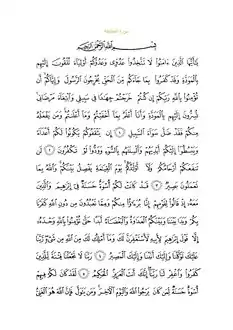 سورة الممتحنة
بِسْمِ اللَّهِ الرَّحْمَٰنِ الرَّحِيمِ
يَٰٓأَيُّهَا الَّذِينَ ءَامَنُوا لَا تَتَّخِذُوا عَدُوِّي وَعَدُوَّكُمْ أَوْلِيَآءَ تُلْقُونَ إِلَيْهِم
بِالْمَوَدَّةِ وَقَدْ كَفَرُوا بِمَا جَآءَكُم مِّنَ الْحَقِّ يُخْرِجُونَ الرَّسُولَ وَإِيَّاكُمْ أَن
تُؤْمِنُوا بِاللَّهِ رَبِّكُمْ إِن كُنتُمْ خَرَجْتُمْ جِهَٰدًا فِي سَبِيلِي وَابْتِغَآءَ مَرْضَاتِي
تُسِرُّونَ إِلَيْهِم بِالْمَوَدَّةِ وَأَنَا۠ أَعْلَمُ بِمَآ أَخْفَيْتُمْ وَمَآ أَعْلَنتُمْ وَمَن يَفْعَلْهُ
مِنكُمْ فَقَدْ ضَلَّ سَوَآءَ السَّبِيلِ ﴿١﴾ إِن يَثْقَفُوكُمْ يَكُونُوا لَكُمْ أَعْدَآءً
وَيَبْسُطُوٓا إِلَيْكُمْ أَيْدِيَهُمْ وَأَلْسِنَتَهُم بِالسُّوٓءِ وَوَدُّوا لَوْ تَكْفُرُونَ ﴿٢﴾ لَن
تَنفَعَكُمْ أَرْحَامُكُمْ وَلَآ أَوْلَٰدُكُمْ يَوْمَ الْقِيَٰمَةِ يَفْصِلُ بَيْنَكُمْ وَاللَّهُ بِمَا
تَعْمَلُونَ بَصِيرٌ ﴿٣﴾ قَدْ كَانَتْ لَكُمْ أُسْوَةٌ حَسَنَةٌ فِيٓ إِبْرَٰهِيمَ وَالَّذِينَ
مَعَهُۥٓ إِذْ قَالُوا لِقَوْمِهِمْ إِنَّا بُرَءَٰٓؤُا مِنكُمْ وَمِمَّا تَعْبُدُونَ مِن دُونِ اللَّهِ كَفَرْنَا
بِكُمْ وَبَدَا بَيْنَنَا وَبَيْنَكُمُ الْعَدَٰوَةُ وَالْبَغْضَآءُ أَبَدًا حَتَّىٰ تُؤْمِنُوا بِاللَّهِ وَحْدَهُۥٓ
إِلَّا قَوْلَ إِبْرَٰهِيمَ لِأَبِيهِ لَأَسْتَغْفِرَنَّ لَكَ وَمَآ أَمْلِكُ لَكَ مِنَ اللَّهِ مِن شَيْءٍ رَّبَّنَا
عَلَيْكَ تَوَكَّلْنَا وَإِلَيْكَ أَنَبْنَا وَإِلَيْكَ الْمَصِيرُ ﴿٤﴾ رَبَّنَا لَا تَجْعَلْنَا فِتْنَةً لِّلَّذِينَ
كَفَرُوا وَاغْفِرْ لَنَا رَبَّنَآ إِنَّكَ أَنتَ الْعَزِيزُ الْحَكِيمُ ﴿٥﴾ لَقَدْ كَانَ لَكُمْ فِيهِمْ
أُسْوَةٌ حَسَنَةٌ لِّمَن كَانَ يَرْجُوا اللَّهَ وَالْيَوْمَ الْءَاخِرَ وَمَن يَتَوَلَّ فَإِنَّ اللَّهَ هُوَ الْغَنِيُّ